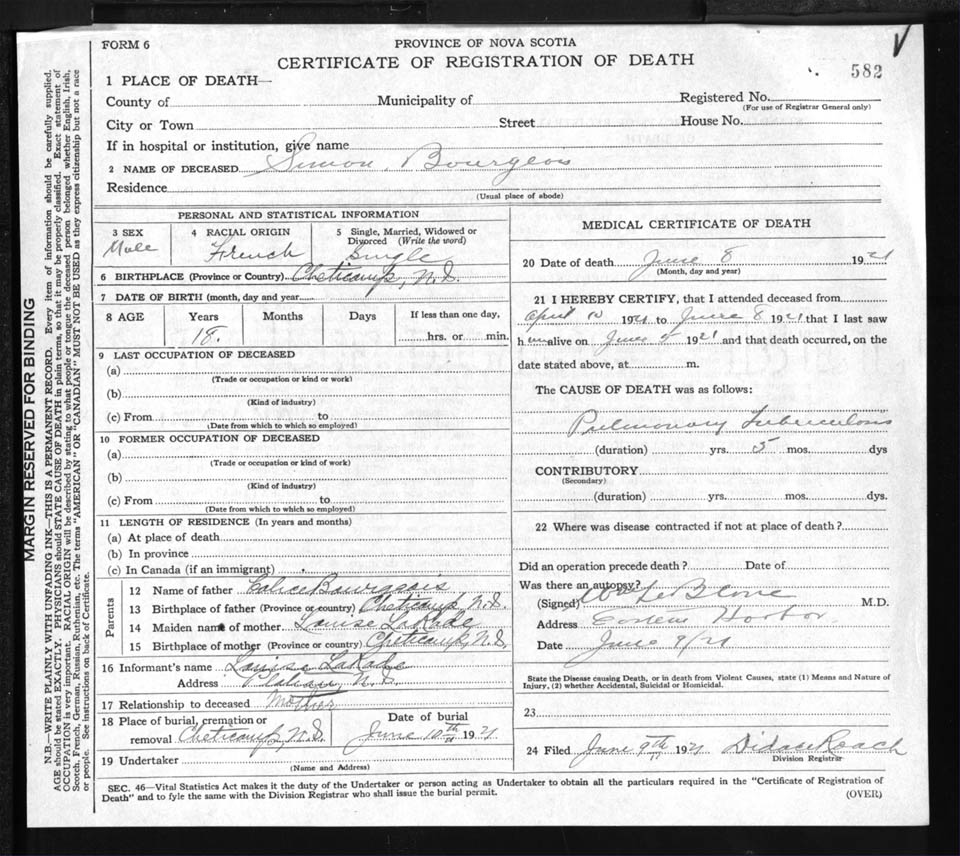 FORM 6
PROVINCE OF NOVA SCOTIA
CERTIFICATE OF REGISTRATION OF DEATH
582
1 PLACE OF DEATH—
County of Municipality of Registered No.
(For use of Registrar General only)
City or Town Street House No.
If in hospital or institution, give name
2 NAME OF DECEASED Simon Bourgeois
Residence
(Usual place of abode)
PERSONAL AND STATISTICAL INFORMATION
3 SEX Male
4 RACIAL ORIGIN French
5 Single, Married, Widowed or Divorced (Write the word) Single
6 BIRTHPLACE (Province or Country) Cheticamp, N.S.
7 DATE OF BIRTH (month, day and year)
8 AGE Years Months Days If less than one day,
18. hrs. or min.
9 LAST OCCUPATION OF DECEASED
(a)
(Trade or occupation or kind or work)
(b)
(Kind of industry)
(c) From to
(Date from which to which so employed)
10 FORMER OCCUPATION OF DECEASED
(a)
(Trade or occupation or kind of work)
(b)
(Kind of industry)
(c) From to
(Date from which to which so employed)
11 LENGTH OF RESIDENCE (In years and months)
(a) At place of death
(b) In province
(c) In Canada (if an immigrant)
Parents
12 Name of father Bourgeois
13 Birthplace of father (Province or country) Cheticamp N.S.
14 Maiden name of mother Louise LaKade
15 Birthplace of mother (Province or country) Cheticamp, N.S.
16 Informant's name Louise LaKade
Address Plateau, N.S.
17 Relationship to deceased Mother
18 Place of burial, cremation or removal Cheticamp, N.S.
Date of burial
June 10th 1921
19 Undertaker
(Name and Address)
MEDICAL CERTIFICATE OF DEATH
20 Date of death June 8 1921
(Month, day and year)
21 I HEREBY CERTIFY, that I attended deceased from
April 10 1921 to June 8 1921 that I last saw
him alive on June 1921 and that death occurred, on the
date stated above, at m.
The CAUSE OF DEATH was as follows:
Pulmonary Tuberculosis
(duration) yrs. 5 mos. dys
CONTRIBUTORY
(Secondary)
(duration) yrs. mos. dys.
22 Where was disease contracted if not at place of death?
Did an operation precede death? Date of
Was there an autopsy?
(Signed) Wm LeBlanc M.D.
Address Eastern Harbor
Date June 9/21
State the Disease causing Death, or in death from Violent Causes, state (1) Means and Nature of
Injury, (2) whether Accidental, Suicidal or Homicidal.
23
24 Filed June 9th 1921 Didace Roach
Division Registrar
SEC. 46—Vital Statistics Act makes it the duty of the Undertaker or person acting as Undertaker to obtain all the particulars required in the "Certificate of Registration of
Death" and to fyle the same with the Division Registrar who shall issue the burial permit.
(OVER)
MARGIN RESERVED FOR BINDING
N.B.—WRITE PLAINLY WITH UNFADING INK—THIS IS A PERMANENT RECORD. Every item of information should be carefully supplied.
AGE should be stated EXACTLY. PHYSICIANS should STATE CAUSE OF DEATH in plain terms, so that it may be properly classified. Exact statement of
OCCUPATION is very important. RACIAL ORIGIN will be described by stating to what people or tongue the deceased person belonged whether English, Irish,
Scotch, French, German, Russian, Ruthenian, etc. The terms "AMERICAN" OR "CANADIAN" MUST NOT BE USED as they express citizenship but not a race
or people. See instructions on back of Certificate.